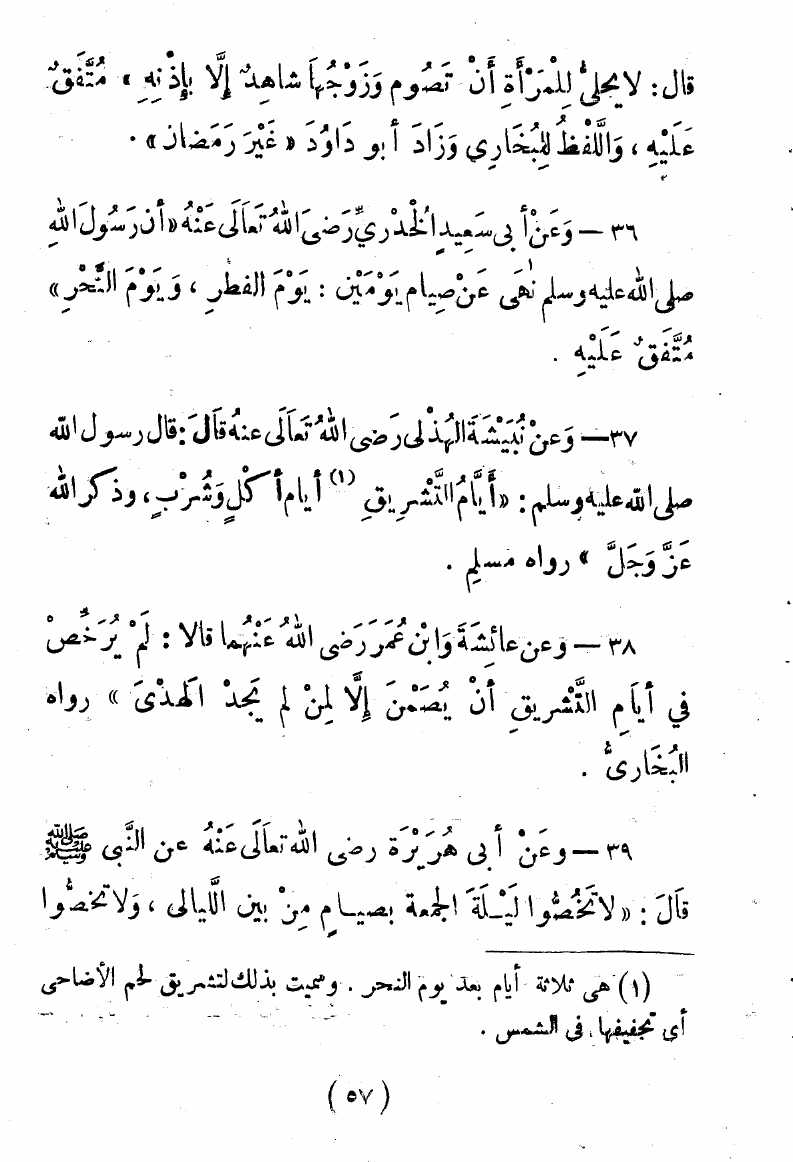 قال : لا يحلُّ لِلْمَرْأَةِ أَنْ تَصُوم وَزَوْجُهَا شاهِدٌ إِلَّا بِإِذْنِهِ » مُتَّفَقٌ
عَلَيْهِ ، وَاللَّفْظُ لِلْبُخَارِي وَزَادَ أبو دَاوُدَ « غَيْرَ رَمَضان » .
٣٦ — وَعَنْ أبى سَعِيدٍ الْخُدْرِيِّ رَضىَ اللهُ تَعَالَى عَنْهُ « أن رَسُولَ اللهِ
صلى الله عليه وسلم نَهَى عَنْ صِيام يَوْمَيْنِ : يَوْمَ الفطْرِ ، وَيَوْمَ النَّحْرِ »
مُتَّفَقٌ عَلَيْهِ .
٣٧ — وَعنْ نُبَيْشَةَ الهُذْلى رَضى اللهُ تَعَالَى عنهُ قالَ : قال رسول الله
صلى الله عليه وسلم : « أَيَّامُ التَّشْرِيقِ (١) أيام أكْلٍ وَشُرْبٍ ، وذكر الله
عَزَّ وَجَلَّ » رواه مسلم .
٣٨ — وَعن عائِشَةَ وَابْنِ عُمَرَ رَضى اللهُ عَنْهُما قالا : لَمْ يُرَخَّصْ
في أيَامِ التَّشْريقِ أنْ يُصَمْنَ إِلَّا لِمنْ لم يَجدْ الهدْىَ » رواه
البُخَارىُّ .
٣٩ — وعَنْ أبى هُرَيْرَة رضى الله تعَالَى عَنْهُ عن النَّبى ﷺ
قَالَ : « لا تَخُصُّوا لَيْلَةَ الجمعة بصيـام مِنْ بين اللَّيالى ، وَلا تخصُّوا
(١) هى ثلاثة أيام بعد يوم النحر . وسميت بذلك لتشريق لحم الأضاحى
أى تجفيفها ، فى الشمس .
( ٥٧ )